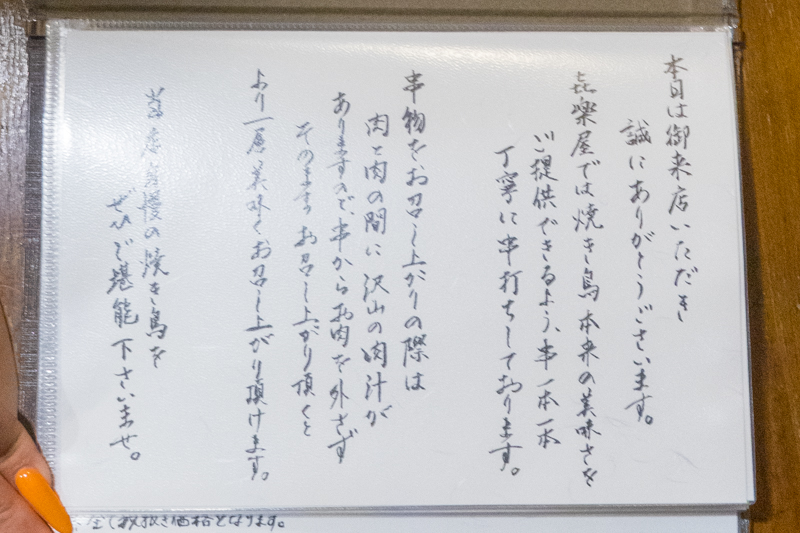 本日は御来店いただき
誠にありがとうございます。
㐂楽屋では焼き鳥本来の美味さを
ご提供できるよう、串一本一本
丁寧に串打ちしております。
串物をお召し上がりの際は
肉と肉の間に沢山の肉汁が
ありますので、串からお肉を外さず
そのままお召し上がり頂くと
より一層美味くお召し上がり頂けます。
当店自慢の焼き鳥を
ぜひご堪能下さいませ。
全て税抜き価格となります。